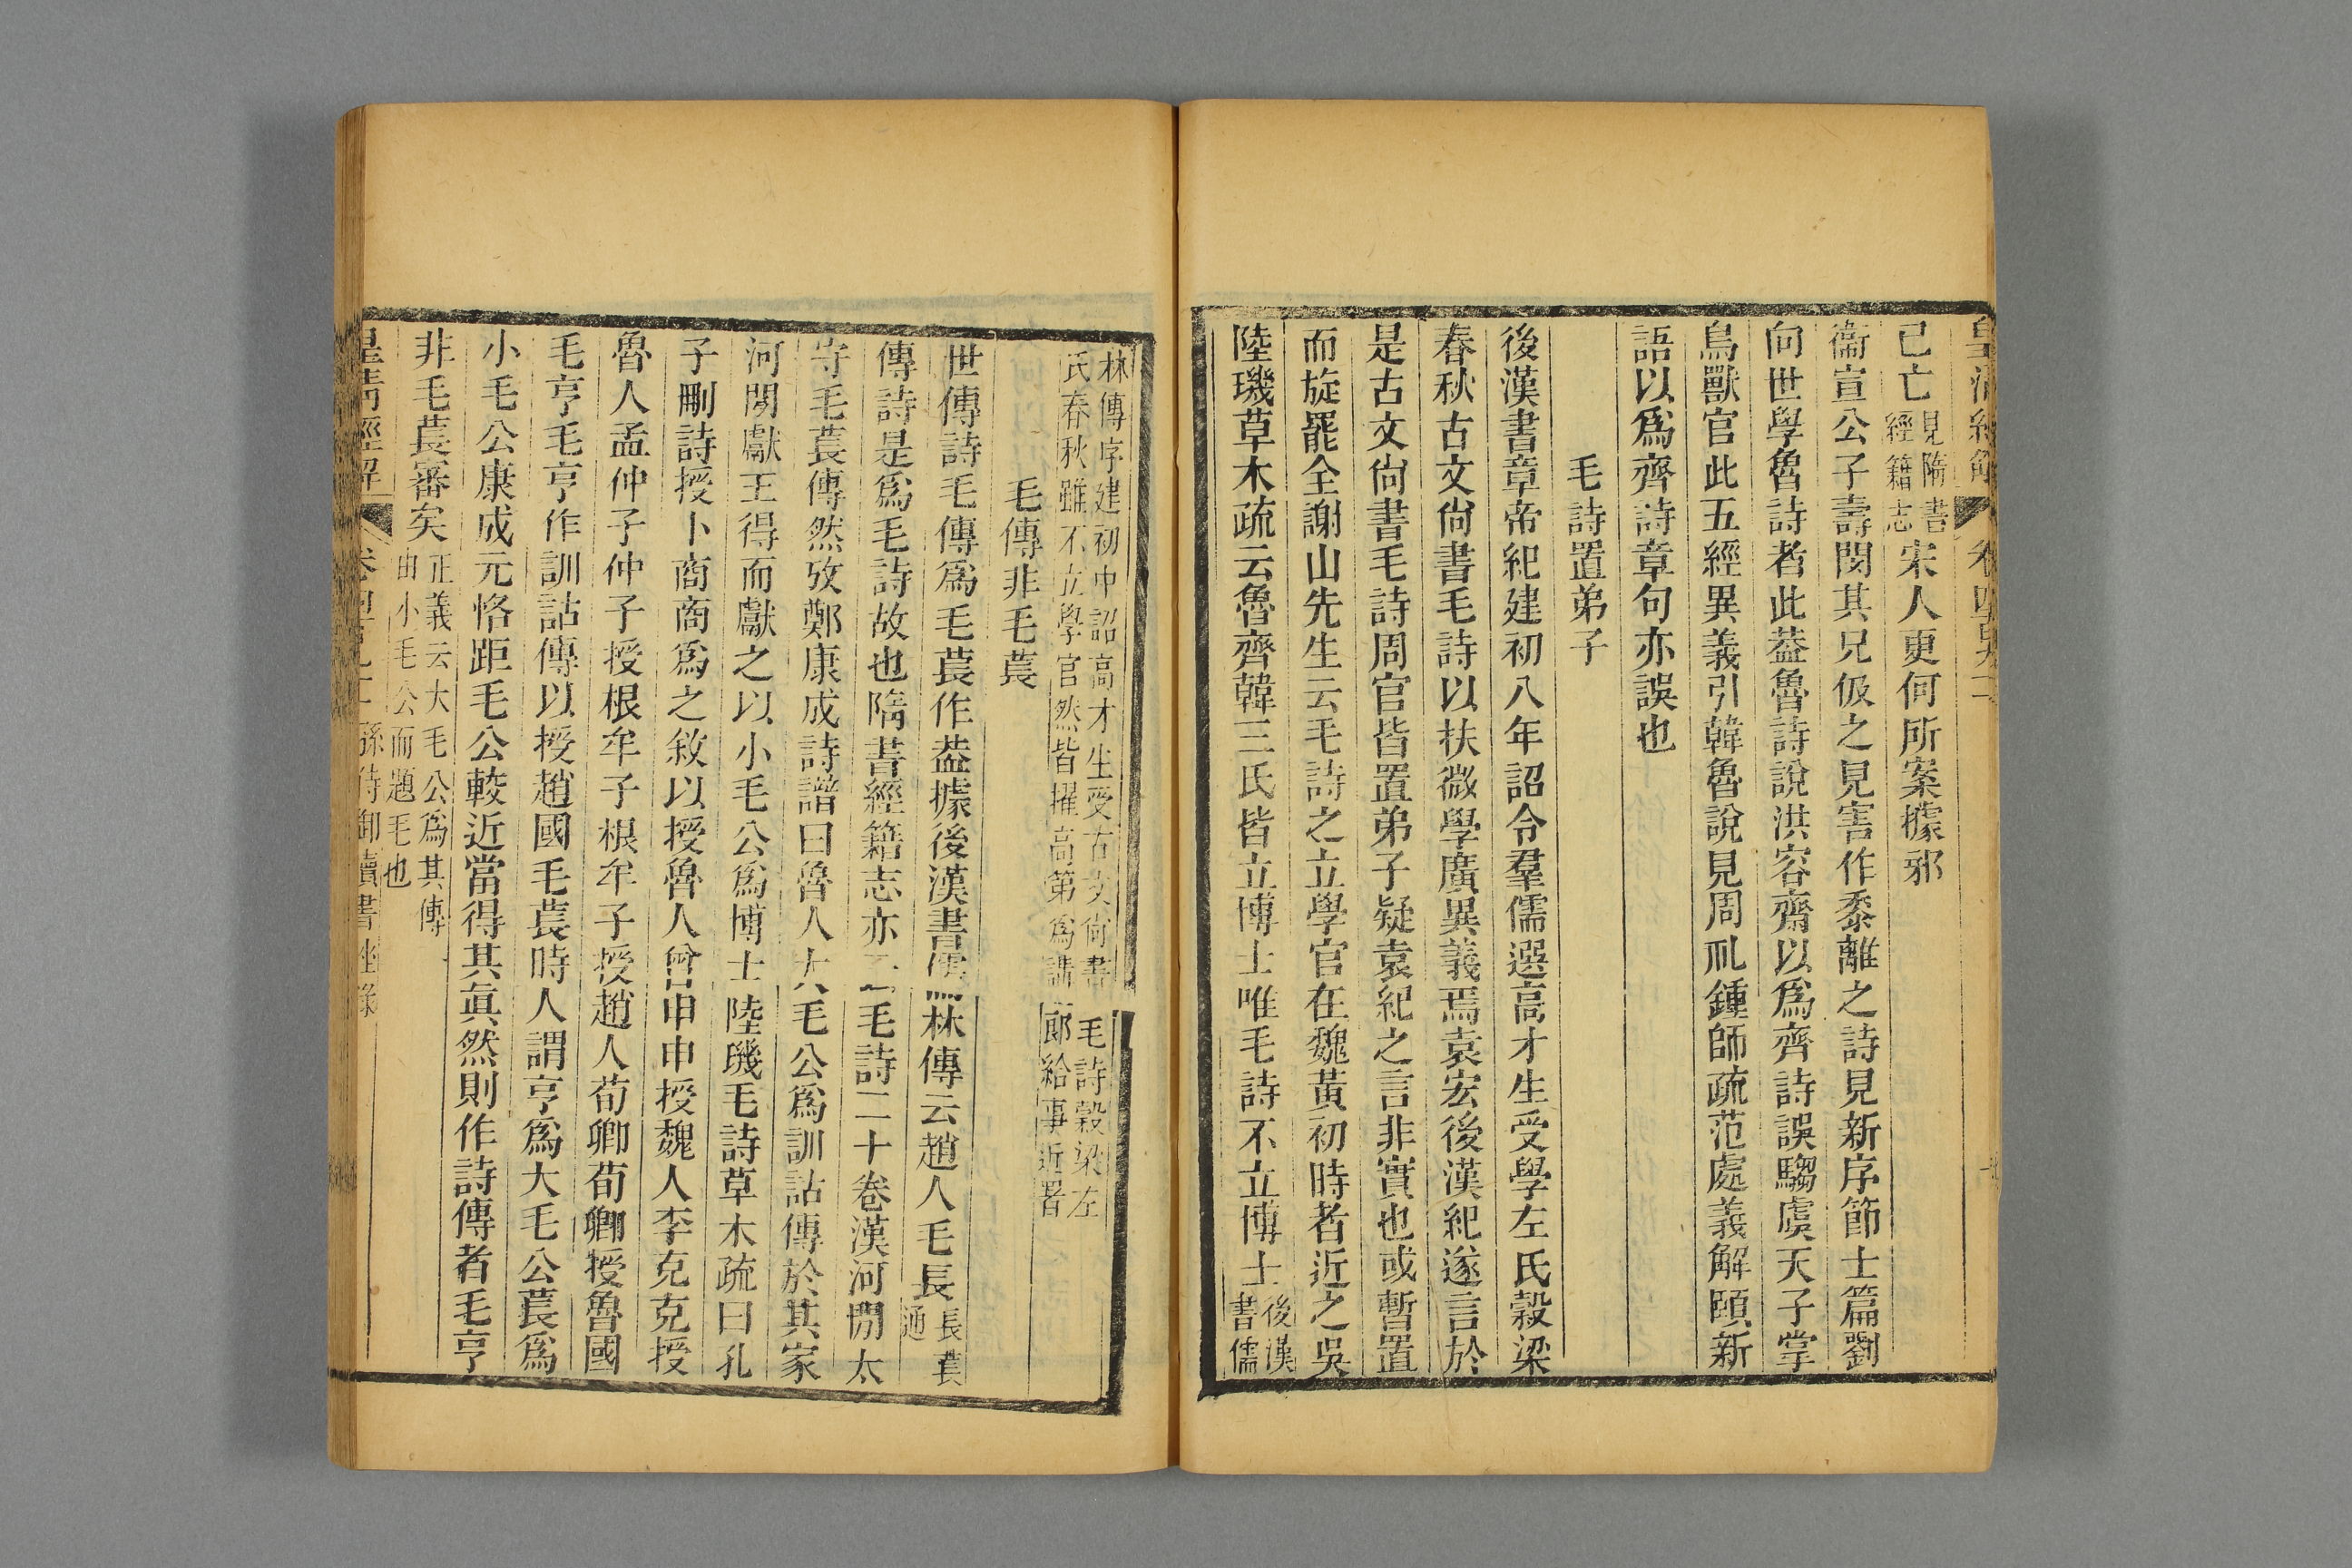 已亡見隋書經籍志宋人更何所案據邪
衞宣公子壽閔其兄伋之見害作黍離之詩見新序節士篇劉
向世學魯詩者此葢魯詩說洪容齋以爲齊詩誤騶虞天子掌
鳥獸官此五經異義引韓魯說見周礼鍾師疏范處義解頤新
語以爲齊詩章句亦誤也
毛詩置弟子
後漢書章帝紀建初八年詔令羣儒選高才生受學左氏穀梁
春秋古文尙書毛詩以扶微學廣異義焉袁宏後漢紀遂言於
是古文尙書毛詩周官皆置弟子疑袁紀之言非實也或暫置
而旋罷全謝山先生云毛詩之立學官在魏黃初時者近之吳
陸璣草木疏云魯齊韓三氏皆立博士唯毛詩不立博士後漢書儒
林傳序建初中詔高才生受古文尙書毛詩穀梁左
氏春秋雖不立學官然皆擢高第爲講郞給事近署
毛傳非毛萇
世傳詩毛傳爲毛萇作葢據後漢書儒林傳云趙人毛長長萇通
傳詩是爲毛詩故也隋書經籍志亦云毛詩二十卷漢河閒太
守毛萇傳然攷鄭康成詩譜曰魯人大毛公爲訓詁傳於其家
河閒獻王得而獻之以小毛公爲博士陸璣毛詩草木疏曰孔
子刪詩授卜商商爲之敘以授魯人曾申申授魏人李克克授
魯人孟仲子仲子授根牟子根牟子授趙人荀卿荀卿授魯國
毛亨毛亨作訓詁傳以授趙國毛萇時人謂亨爲大毛公萇爲
小毛公康成元恪距毛公較近當得其眞然則作詩傳者毛亨
非毛萇審矣正義云大毛公爲其傳由小毛公而題毛也
皇淸經解 孫侍御讀書脞錄